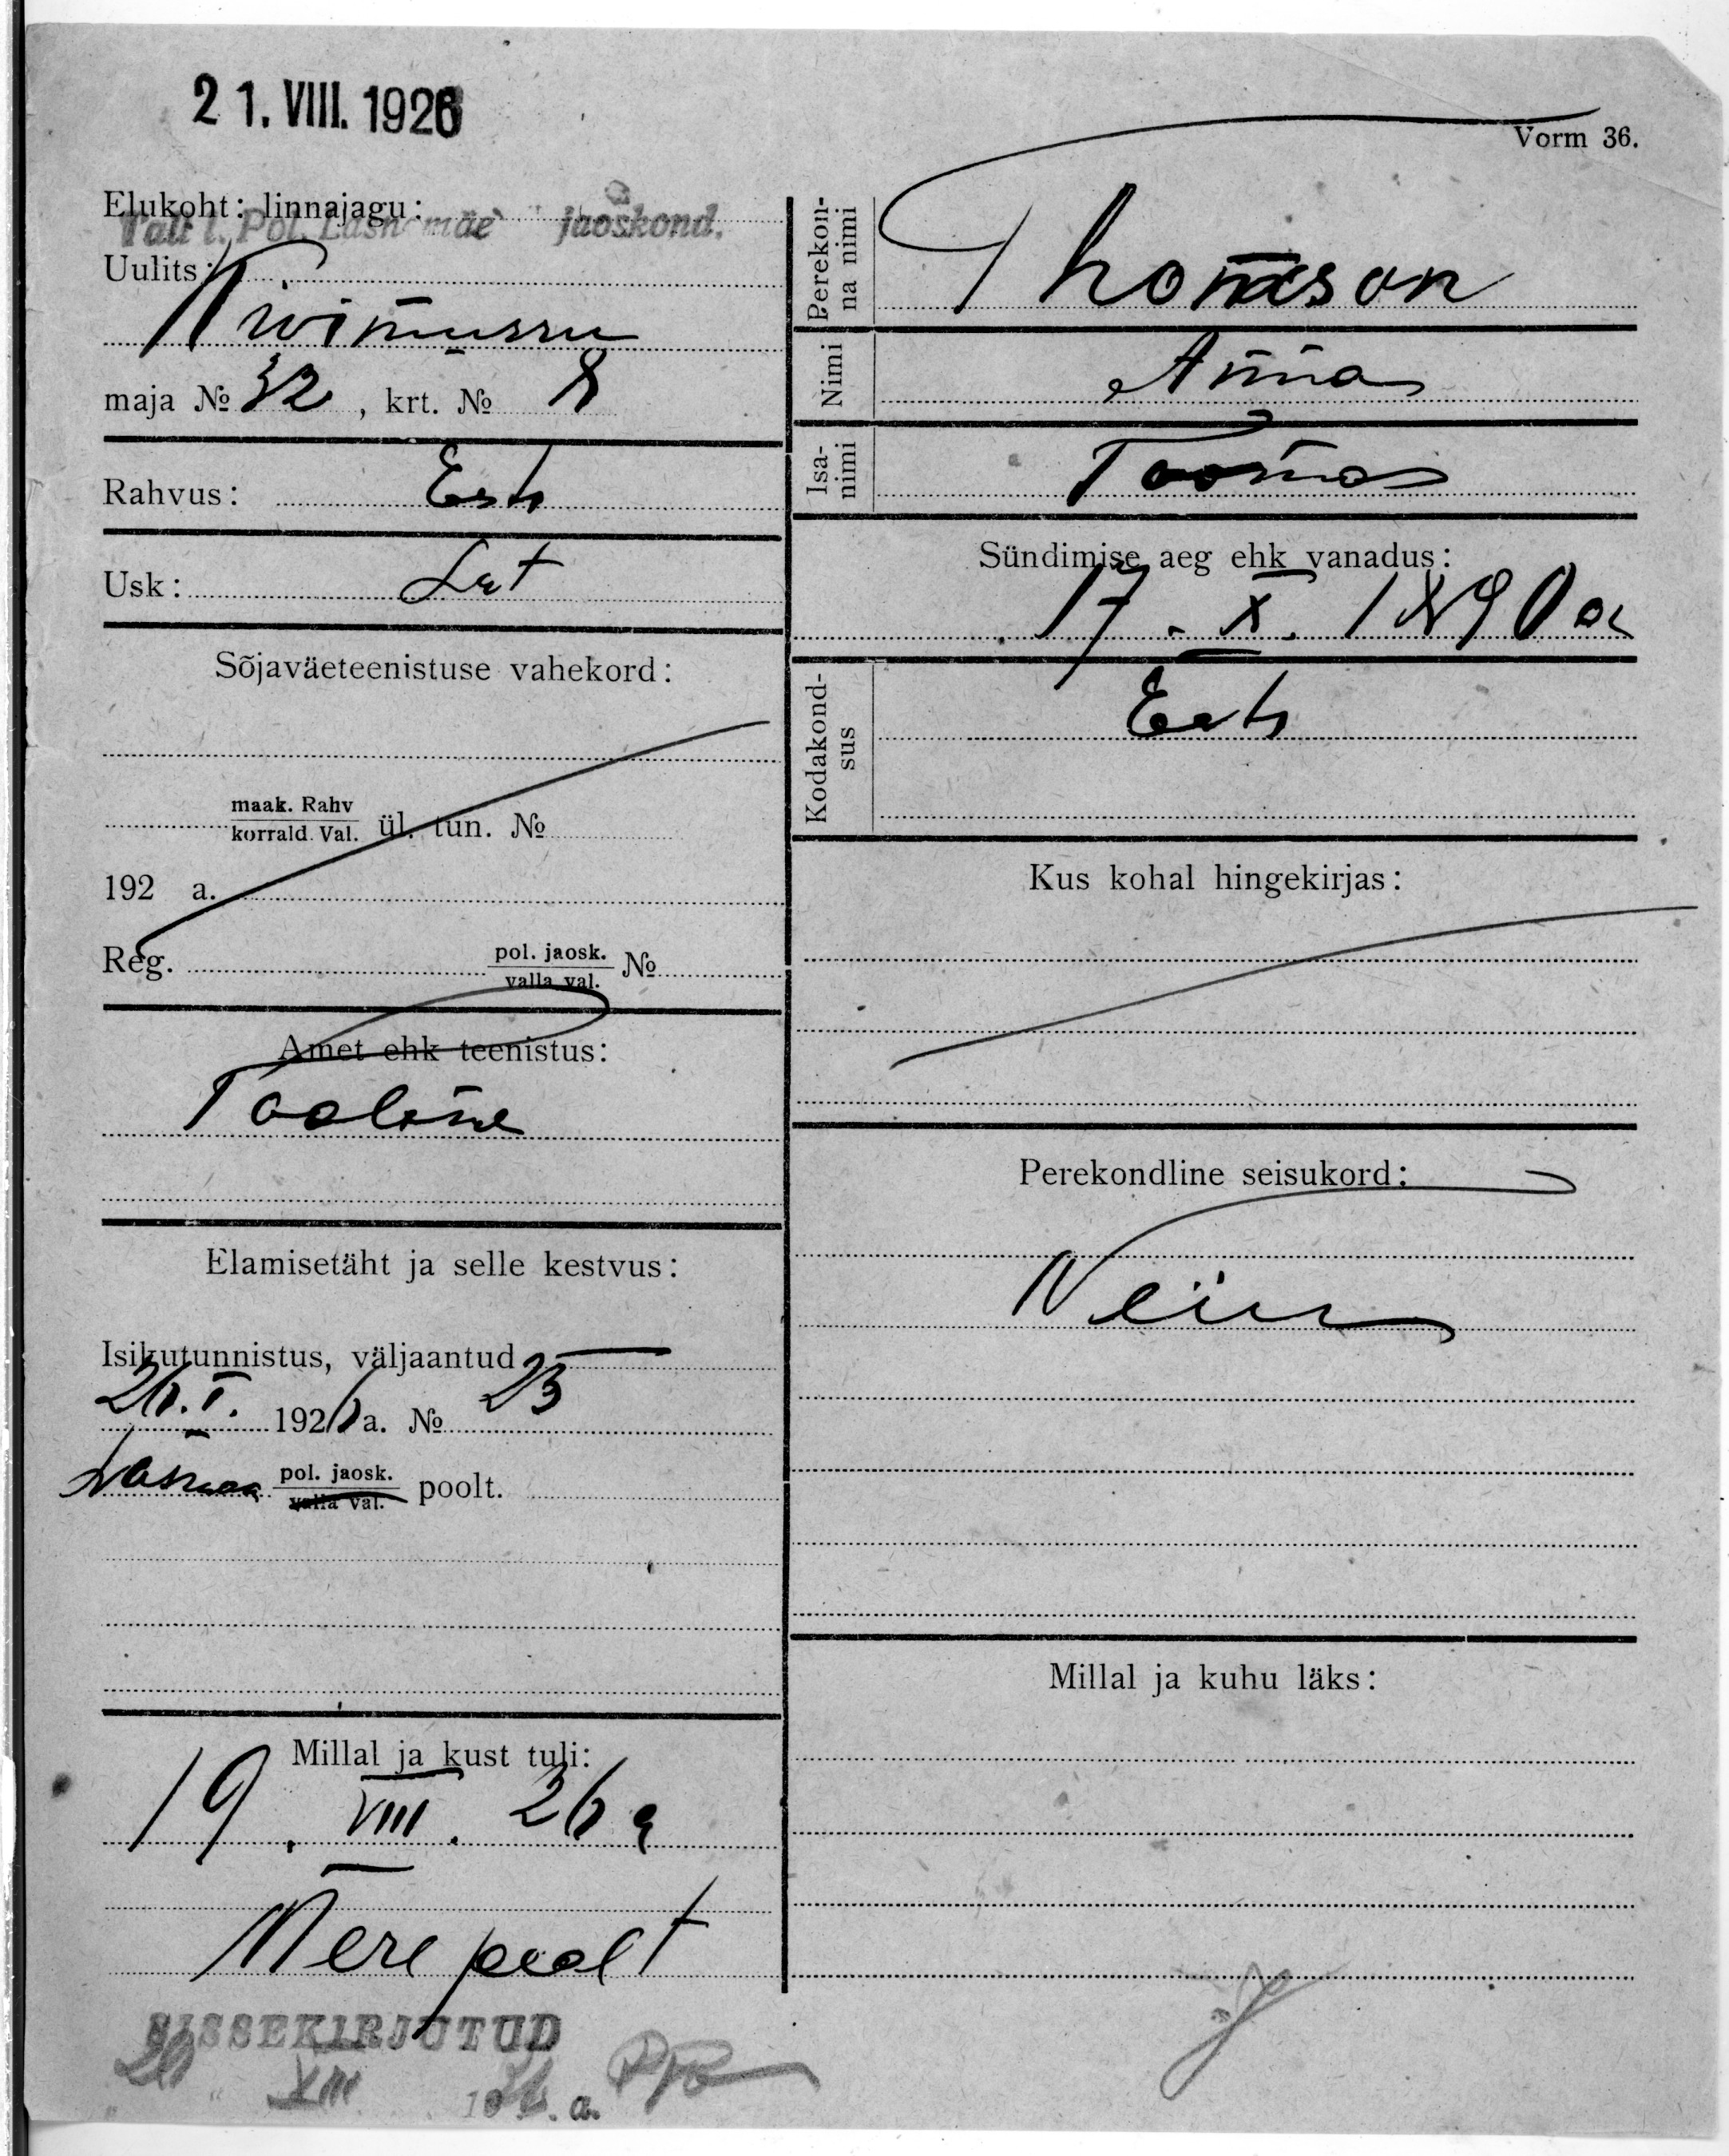 21. VIII. 1926
Vorm 36.
Elukoht: linnajagu:
Tall l. Pol. Lasnamäe jaoskond.
Uulits:
Kivimurru
maja № 32, krt. № 8
Rahvus: Eesti
Usk: Lut
Sõjaväeteenistuse vahekord:
maak. Rahv
korrald. Val. ül. tun. №
192 a.
Reg. pol. jaosk. №
valla val.
Amet ehk teenistus:
Tööline
Elamisetäht ja selle kestvus:
Isikutunnistus, väljaantud
26. I. 1926 a. № 23
pol. jaosk.
valla val. poolt.
Millal ja kust tuli:
19. VIII. 26 a
Mere jaost
SISSEKIRJUTUD
20 VIII 1926. a.
Perekonna nimi
Thomson
Nimi
Anna
Isanimi
Toomas
Sündimise aeg ehk vanadus:
17. X. 1890 a
Kodakondsus
Eesti
Kus kohal hingekirjas:
Perekondline seisukord:
Neiu
Millal ja kuhu läks: